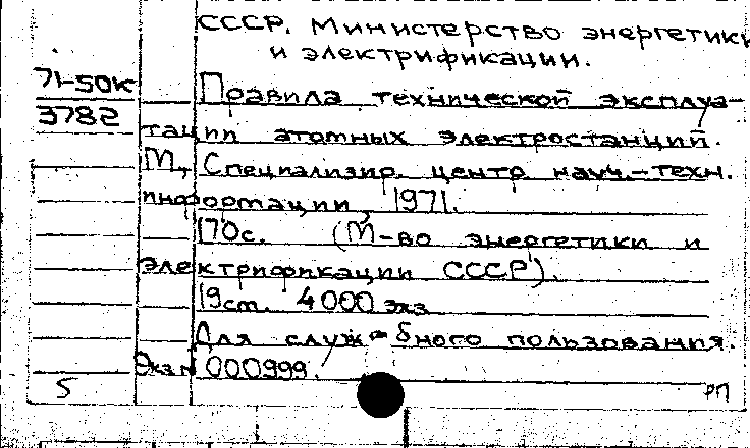 СССР. Министерство энергетики
и электрификации.
71-50к
3782
Правила технической эксплуа-
тации атомных электростанций.
М., Специализир. центр науч.-техн.
информации, 1971.
170с. (М-во энергетики и
электрификации СССР).
19см. 4000 экз
Для служебного пользования.
Экз N 000999.
5
РП